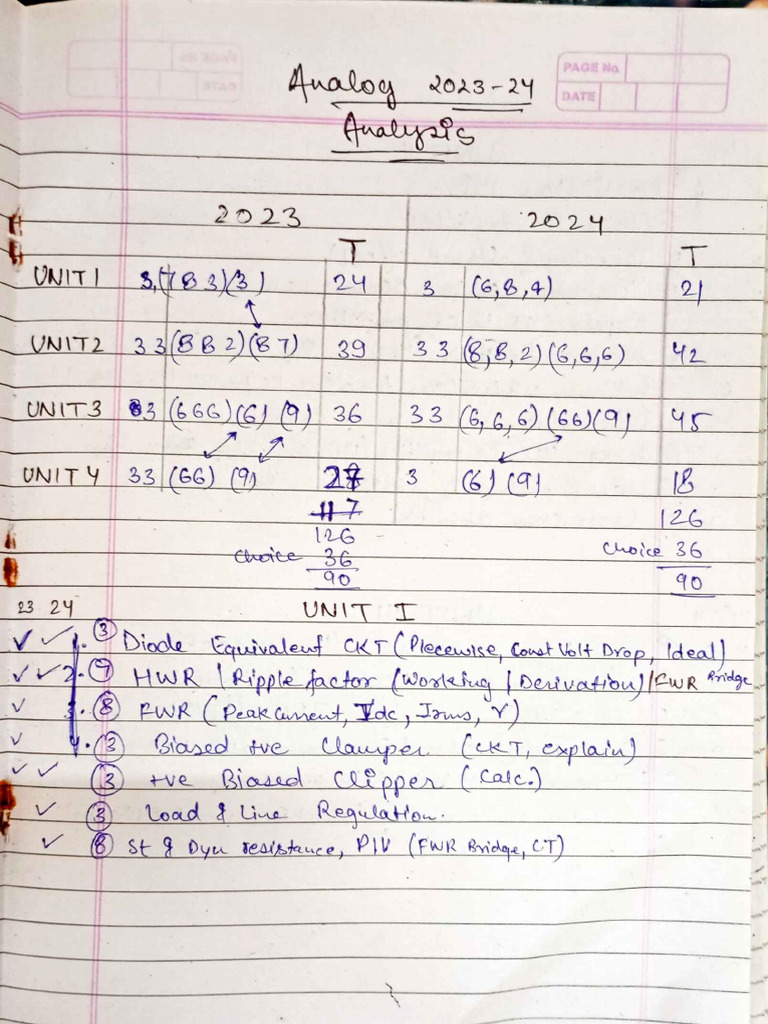 PAGE No
DATE
Analog 2023-24
Analysis
2023 2024
T T
UNIT 1 3,(7 8 3)(3) 24 3 (6,8,4) 21
UNIT2 3 3 (8 8 2)(8 7) 39 3 3 (8,8,2)(6,6,6) 42
UNIT3 3 (666)(6) (9) 36 33 (6,6,6) (66)(9) 45
UNIT 4 33 (66) (9) 27 3 (6) (9) 18
117
126 126
choice 36 choice 36
90 90
23 24 UNIT I
✓ ✓ 1. ③ Diode Equivalent CKT (Piecewise, Const Volt Drop, Ideal)
✓ ✓ 2. ⑦ HWR / Ripple factor (Working / Derivation) / FWR Bridge
✓ 3. ⑧ FWR (Peak Current, Idc, Irms, r)
✓ 4. ③ Biased +ve Clamper (CKT, explain)
✓ ✓ ③ +ve Biased Clipper (Calc.)
✓ ③ Load & Line Regulation.
✓ ⑧ St & Dyn resistance, PIV (FWR Bridge, CT)